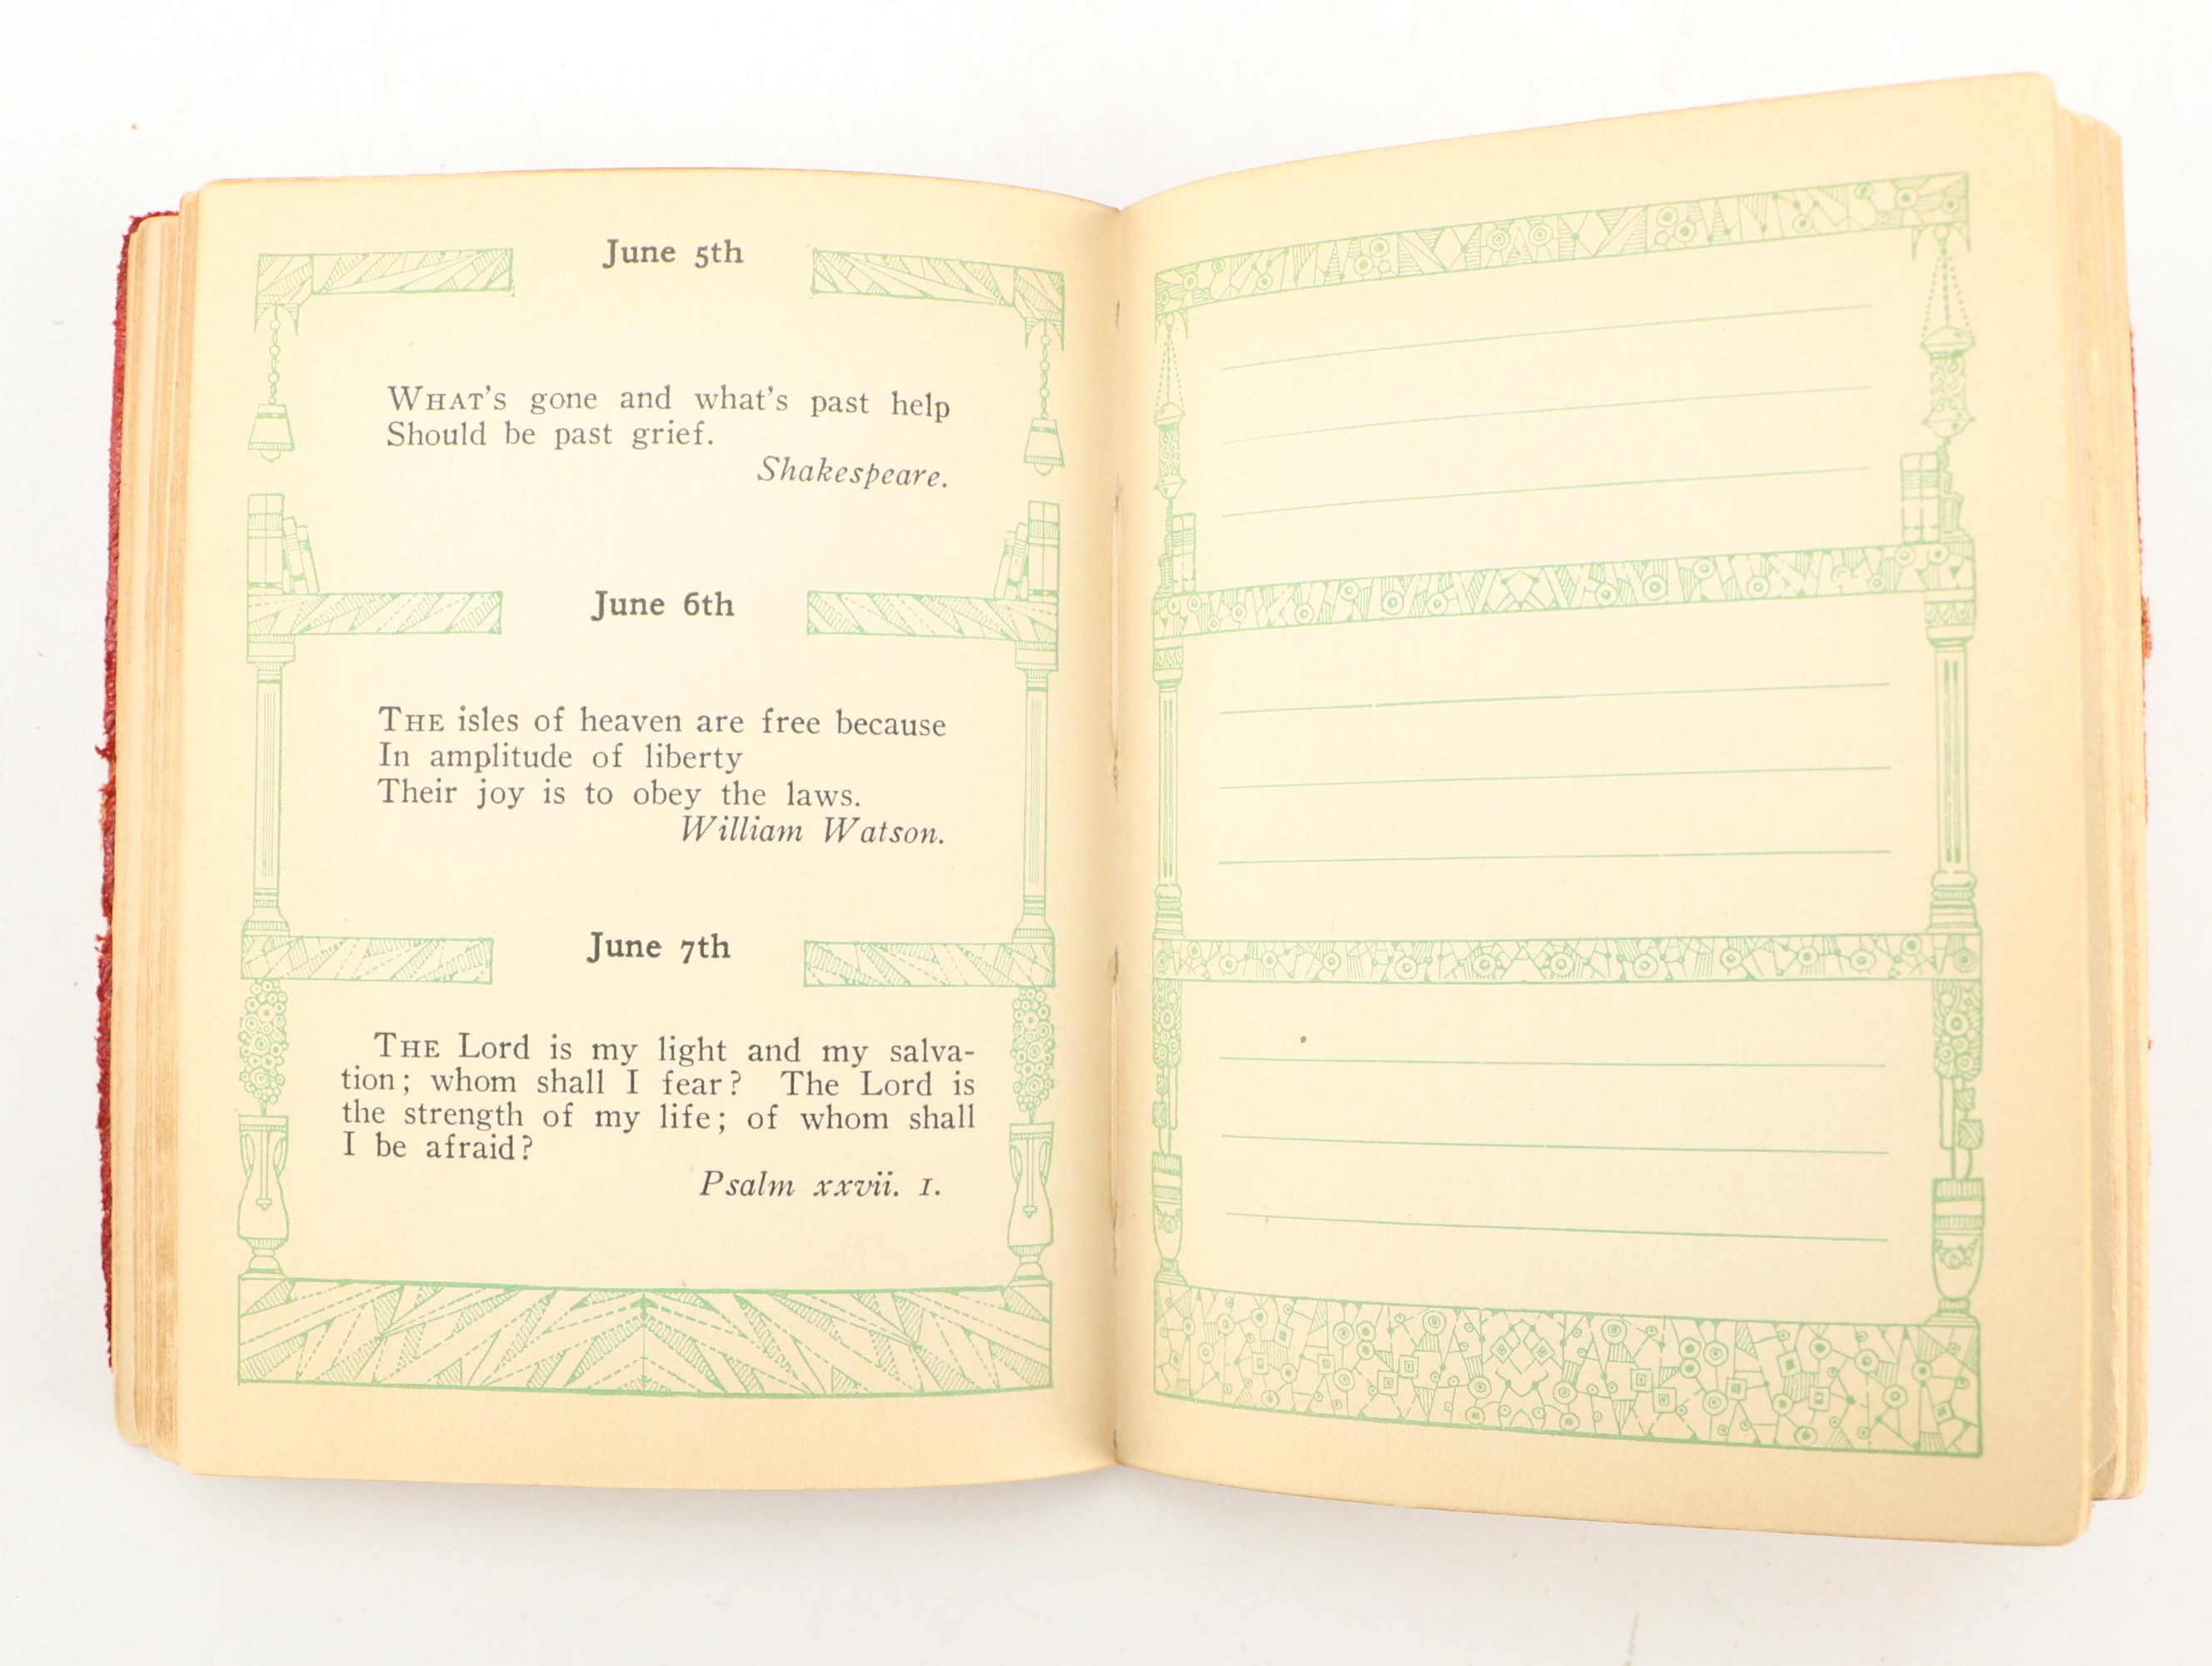 June 5th
WHAT's gone and what's past help
Should be past grief.
Shakespeare.
June 6th
THE isles of heaven are free because
In amplitude of liberty
Their joy is to obey the laws.
William Watson.
June 7th
THE Lord is my light and my salva-
tion; whom shall I fear? The Lord is
the strength of my life; of whom shall
I be afraid?
Psalm xxvii. 1.